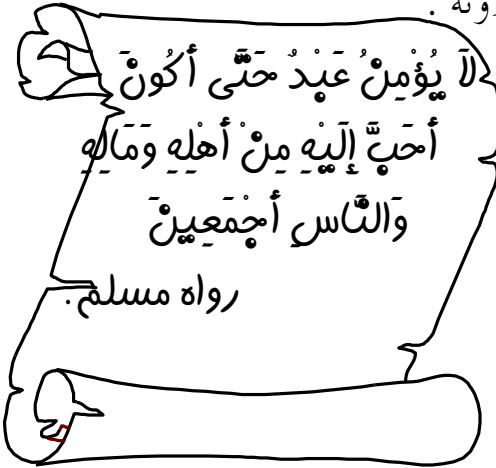 لَا يُؤْمِنُ عَبْدٌ حَتَّى أَكُونَ
أَحَبَّ إِلَيْهِ مِنْ أَهْلِهِ وَمَالِهِ
وَالنَّاسِ أَجْمَعِينَ
رواه مسلم.